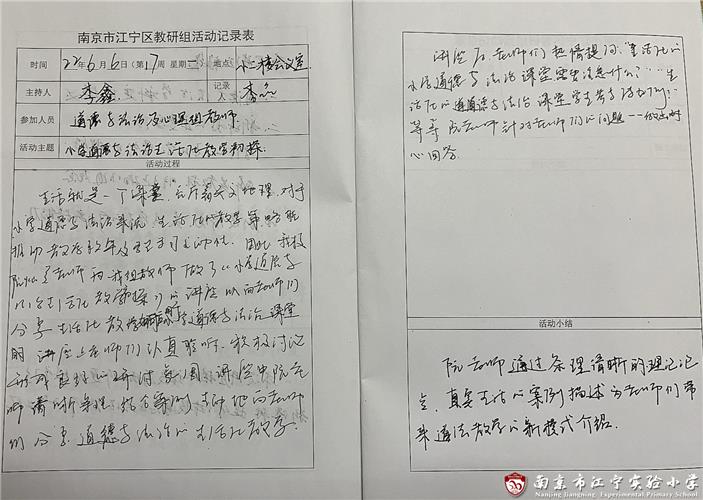 南京市江宁区教研组活动记录表
时间 22年6月6日（第17周 星期一） 地点 小二楼会议室
主持人 李鑫 记录人 李
参加人员 道德与法治及心理组教师
活动主题 小学道德与法治生活化教学初探
活动过程
生活就是一个课堂，
小学道德与法治来说，生活化的教学策略能
因此我校
阮 老师为我组教师做了《小学道德与
法治生活化教学初探》的讲座，以向老师们
分享生活化教学 道德与法治课堂
的 讲座上老师们认真聆听，积极讨论
形成良好的研讨氛围，讲座中阮老
师清晰 结合案例，生动地向老师
们分享道德与法治的生活化教学。
讲座后，老师们积极提问，“生活化的
小学道德与法治课堂需要注意什么？”“生
活化的道德与法治课堂
等等，阮老师针对老师们的问题一一做出耐
心回答。
活动小结
阮老师通过条理清晰的理论
真实生活的案例描述为老师们带
来道法教学的新模式介绍。
南京市江宁实验小学
Nanjing Jiangning Experimental Primary School